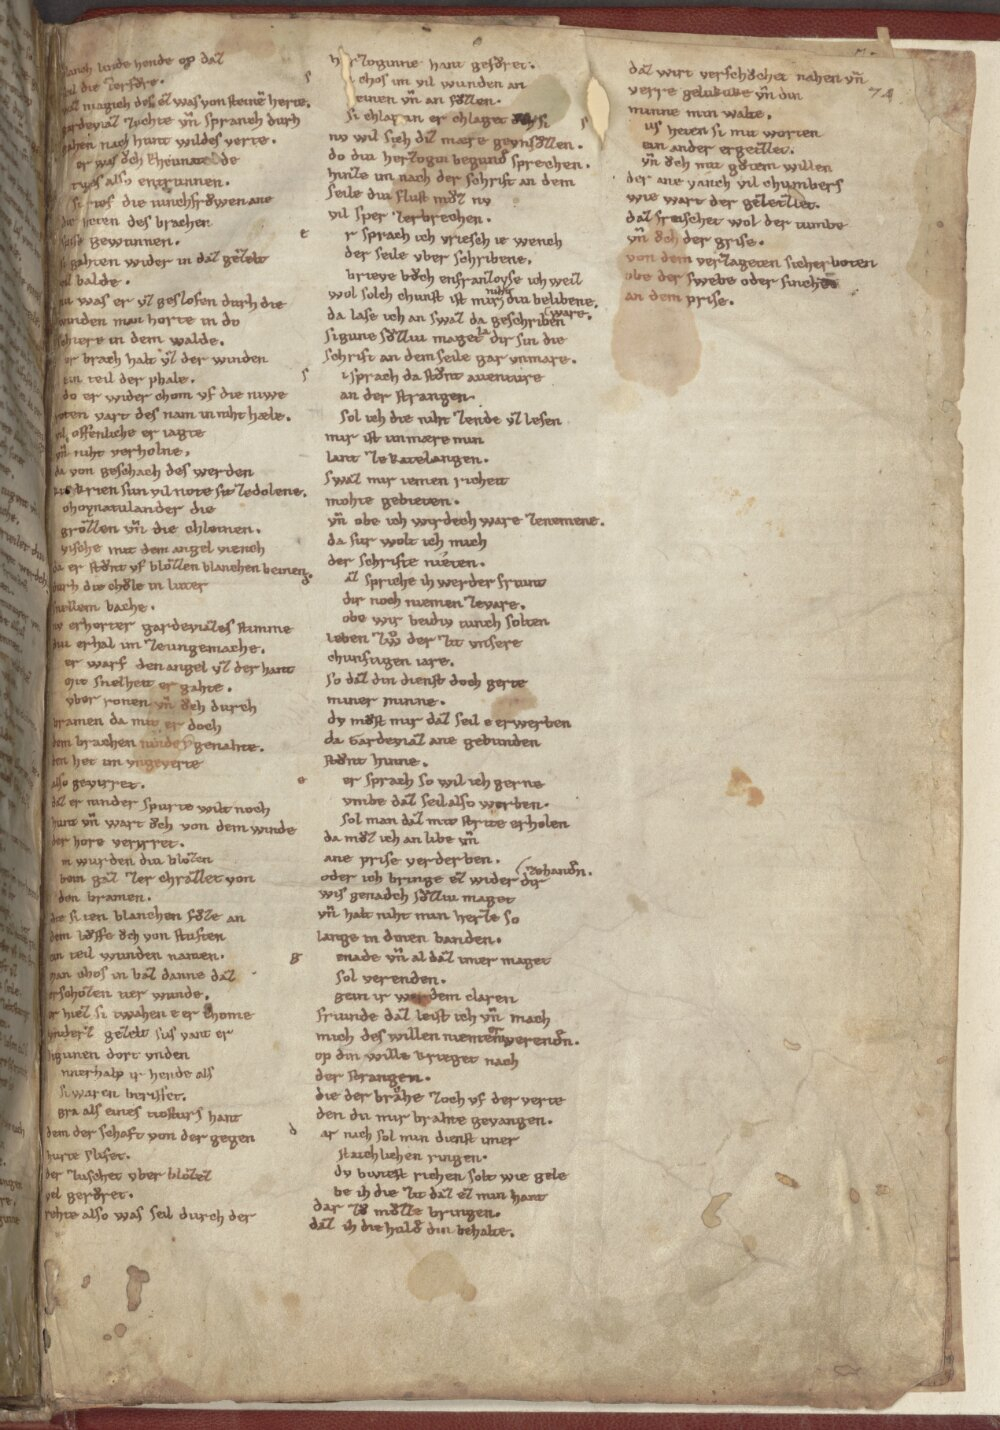 blanch linde hende op daz
seil die zersore.
daz magich des ez was von steine herte.
gardeviaz zochte vn spranch durh
gahen nach hunt wildes verte.
er was och Ekunate de
rges also entrunnen.
si rief die iunchfrowen ane
die hoten des brachen
gewunnen.
gahten wider in daz gezelt
vil balde.
nu was er vz geslofen durh die
winden man horte in do
schiere in dem walde.
er brach halt vz der winden
ein teil der phale.
do er wider chom vf die niwe
roten vart des nam in niht hæle.
vil offenliche er iagte
vn niht verholne.
da von geschach des werden
krien sun vil note sit zedolene.
choynatulander die
grozzen vn die chleinen.
vische mit dem angel viench
da er stont vf blozzen blanchen beinen.
durh die chole in luter
snellem bache.
nv erhorter gardeviazes stimme
diu erhal im zevngemache.
er warf den angel vz der hant
mit snelheit er gahte.
vber ronen vn och durch
bramen da mit er doch
dem brachen ninder genahte.
den het im vngeverte
also gevirret.
daz er ninder spurte wilt noch
hunt vn wart och von dem winde
der hore verirret.
m wurden diu blozen
bein gaz zer chrazzet von
den bramen.
die si ien blanchen foze an
dem loffe och von stiften
ein teil wunden namen.
man chos in baz danne daz
erschozen tier wunde.
er hiez si twahen e er chome
vnderz gezelt sus vant er
sigunen dort vnden
nnerhalp ir hende als
si waren berifet.
gra als eines tiosturs hant
dem der schaft von der gegen
hurte slifet.
der zuschet vber blozez
vel geroret.
rehte also was seil durch der
herzoginne hant geforet.
s chos im vil wunden an
beinen vn an fozzen.
si chlaget in er chlaget ovch si
nv wil sich diz mære gevnsozzen.
do diu herzogin begund sprechen.
hinze im nach der schrift an dem
seile diu flust moz nv
vil sper zerbrechen.
e r sprach ich vriesch ie wench
der seile vber schribene.
brieve boch enfranzoyse ich weiz
wol solch chunst ist mir niht diu belibene.
da lase ich an swaz da geschriben ware.
sigune sozziu maget la dir sin die
schrift an dem seile gar vnmære.
s i sprach da stont auenture
an der strangen.
sol ich die niht zende vz lesen
mir ist unmære min
lant zekatelangen.
swaz mir iemen richeit
mohte gebieten.
vn obe ich wirdech ware zenemene.
da fur wolt ich mich
der schrifte nieten.
az spriche ih werder friunt
dir noch niemen zevare.
obe wir beidiv iunch solten
leben zv der zit vnsere
chunftigen iare.
so daz din dienst doch gerte
miner minne.
dv most mir daz seil e erwerben
da Gardeviaz ane gebunden
stont hinne.
e er sprach so wil ich gerne
vmbe daz seil also werben.
sol man daz mit strite erholen
da moz ich an libe vn
ane prise verderben.
oder ich bringe ez wider dir zehanden.
wis genadech sozziu maget
vn halt niht min herze so
lange in dinen banden.
g enade vn al daz imer maget
sol verenden.
gein ir werdem claren
friunde daz leist ich vn mach
mich des willen niemen erwenden.
op din wille krieget nach
der strangen.
die der brahe zoch vf der verte
den du mir brahte gevangen.
d ar nach sol min dienst imer
stætchlichen ringen.
dv biutest richen solt wie gele
be ih die zit daz ez min hant
dar zo mozze bringen.
daz ih die huld din behalte.
74
daz wirt versochet nahen vn
verre gelukke vn diu
minne min walte.
us heten si mit worten
ein ander ergezzet.
vn och mit gotem willen
der ane vanch vil chumbers
wie wart der geletzet.
daz freischet wol der tumbe
vn och der grise.
von dem verzageten sicherboten
obe der swebe oder sinche
an dem prise.